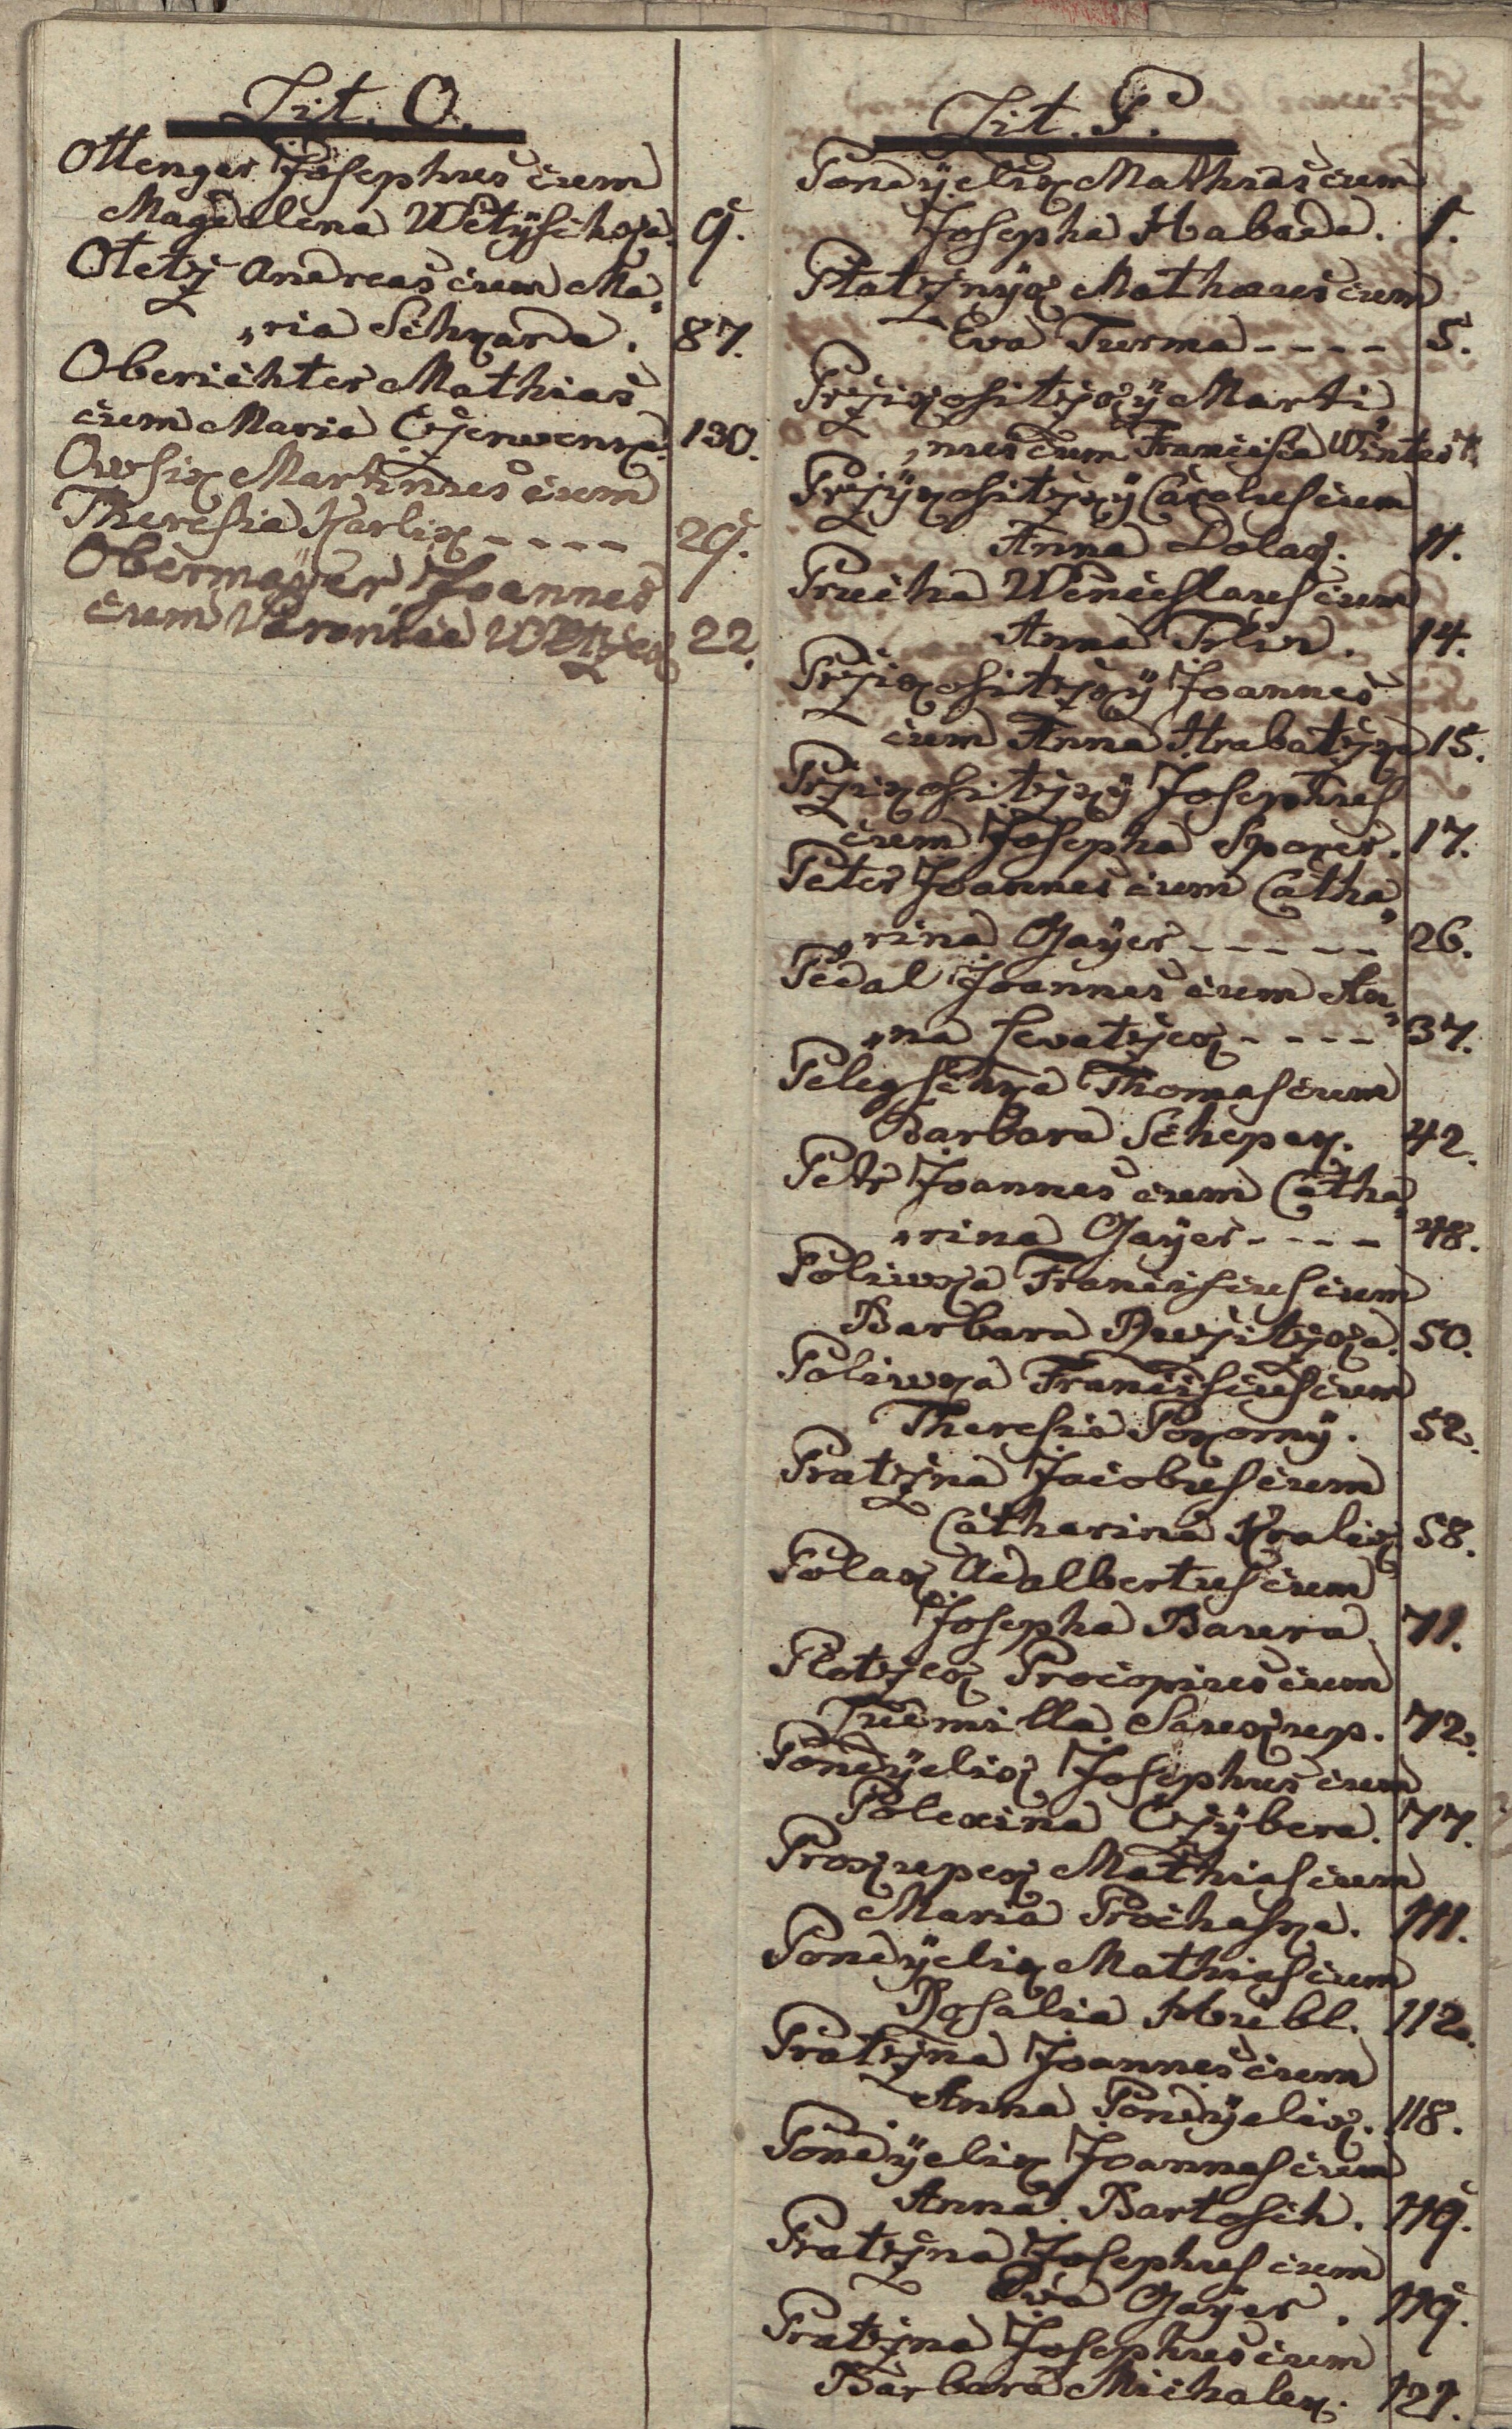 Lit. O.
Ottenger Josephus cum
Magdalena Wetyschka. 9.
Otetz Andreas cum Ma,
„ria Schkarda. 87.
Oberichter Mathias
cum Maria Czerwenka. 130.
Owsik Martinus cum
Theresia Karlik ---- 29.
Obermayer Joannes
cum Veronica 22.
Lit. P.
Pondyelik Mathias cum
Josepha Habada. 1.
Platznyk Mathaeus cum
Eva Turma ---- 5.
Przikositzky Marti
„nus cum Francisca Winter
Przykositzky Carolus cum
Anna Dolak. 11.
Prucha Wenceslaus cum
Anna 14.
Przikositzky Joannes
cum Anna Hrabatzka 15.
Przikositzky Josephus
cum Josepha Sporer. 17.
Peter Joannes cum Catha„
„rina Gayer ----- 26.
Pedal Joannes cum An„
„na Swatzek ---- 37.
Pelegschka Thomas cum
Barbara Schepak. 42.
Petr Joannes cum Catha„
„rina Gayer ---- 48.
Poliwka Franciscus cum
Barbara 50.
Poliwka Franciscus cum
Theresia Pokorny. 52.
Pratzna Jacobus cum
Catharina Kralik 58.
Polak Adalbertus cum
Josepha Baura. 71.
Plotzek Procopius cum
Saukup. 72.
Pondyelik Josephus cum
Polexina Czybera. 77.
Prokupek Mathias cum
Maria Prochaska. 111.
Pondyelik Mathias cum
Rosalia Hrubl. 112.
Pratzna Joannes cum
Anna Pondyelik. 118.
Pondyelik Joannes cum
Anna. Bartosch. 119.
Pratzna Josephus cum
Eva Gayer. 119.
Pratzna Josephus cum
Barbara Michalek. 121.